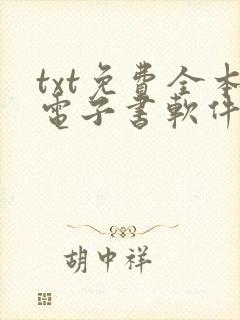 txt免費全本
電子書軟件
胡中祥